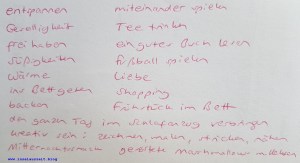 entspannen miteinander spielen
Geselligkeit Tee trinken
frei haben ein guter Buch lesen
Süßigkeiten fußball spielen
Wärme Liebe
ins Bett gehen shopping
backen Frühstück im Bett
den ganzen Tag im Schlafanzug verbringen
kreativ sein: zeichnen, malen, stricken, nähen
Mitternachtssnack geröstete Marshmallows